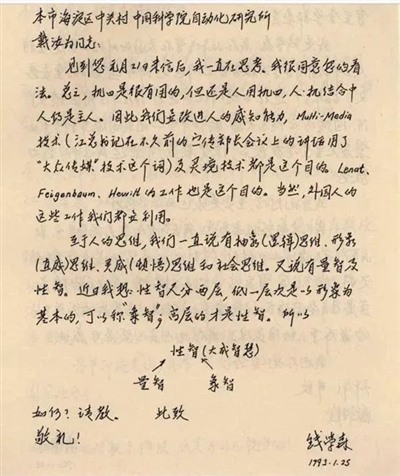 本市海淀区中关村 中国科学院自动化研究所
戴汝为同志：
见到您元月21日来信后，我一直在思考。我很同意您的看
法。总之，机四是很有用的，但还是人用机四，人·机结合中
人仍是主人。因此我们要改进人的感知能力，Multi-Media
技术（江总书记在不久前的宣传部长会议上的讲话用了
“大众传媒”技术这个词）及灵境技术都是这个目的。Lenat、
Feigenbaum、Hewitt的工作也是这个目的。当然，外国人的
这些工作我们都要利用。
至于人的思维，我们一直说有抽象（逻辑）思维、形象
（直感）思维、灵感（顿悟）思维和社会思维。又说有量智及
性智。近日我想：性智又分两层，低一层次是以形象为
基本的，可以称“象智”；高层的才是性智。所以
性智（大成智慧）
量智 象智
如何？请教。 此致
敬礼！
钱学森
1993.1.25